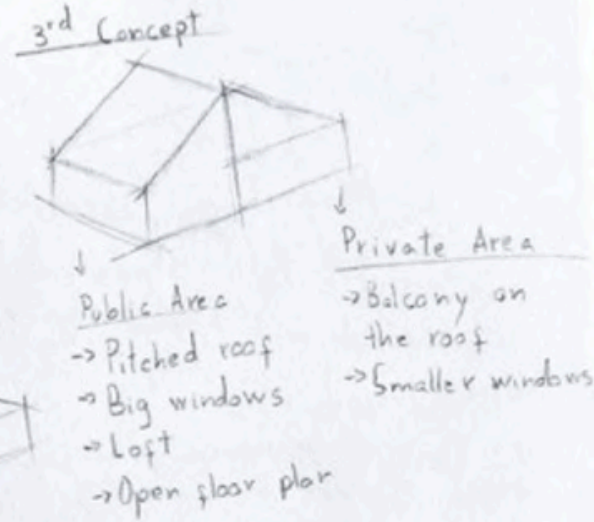 3rd Concept
Public Area
-> Pitched roof
-> Big windows
-> Loft
-> Open floor plan
Private Area
-> Balcony on
the roof
-> Smaller windows